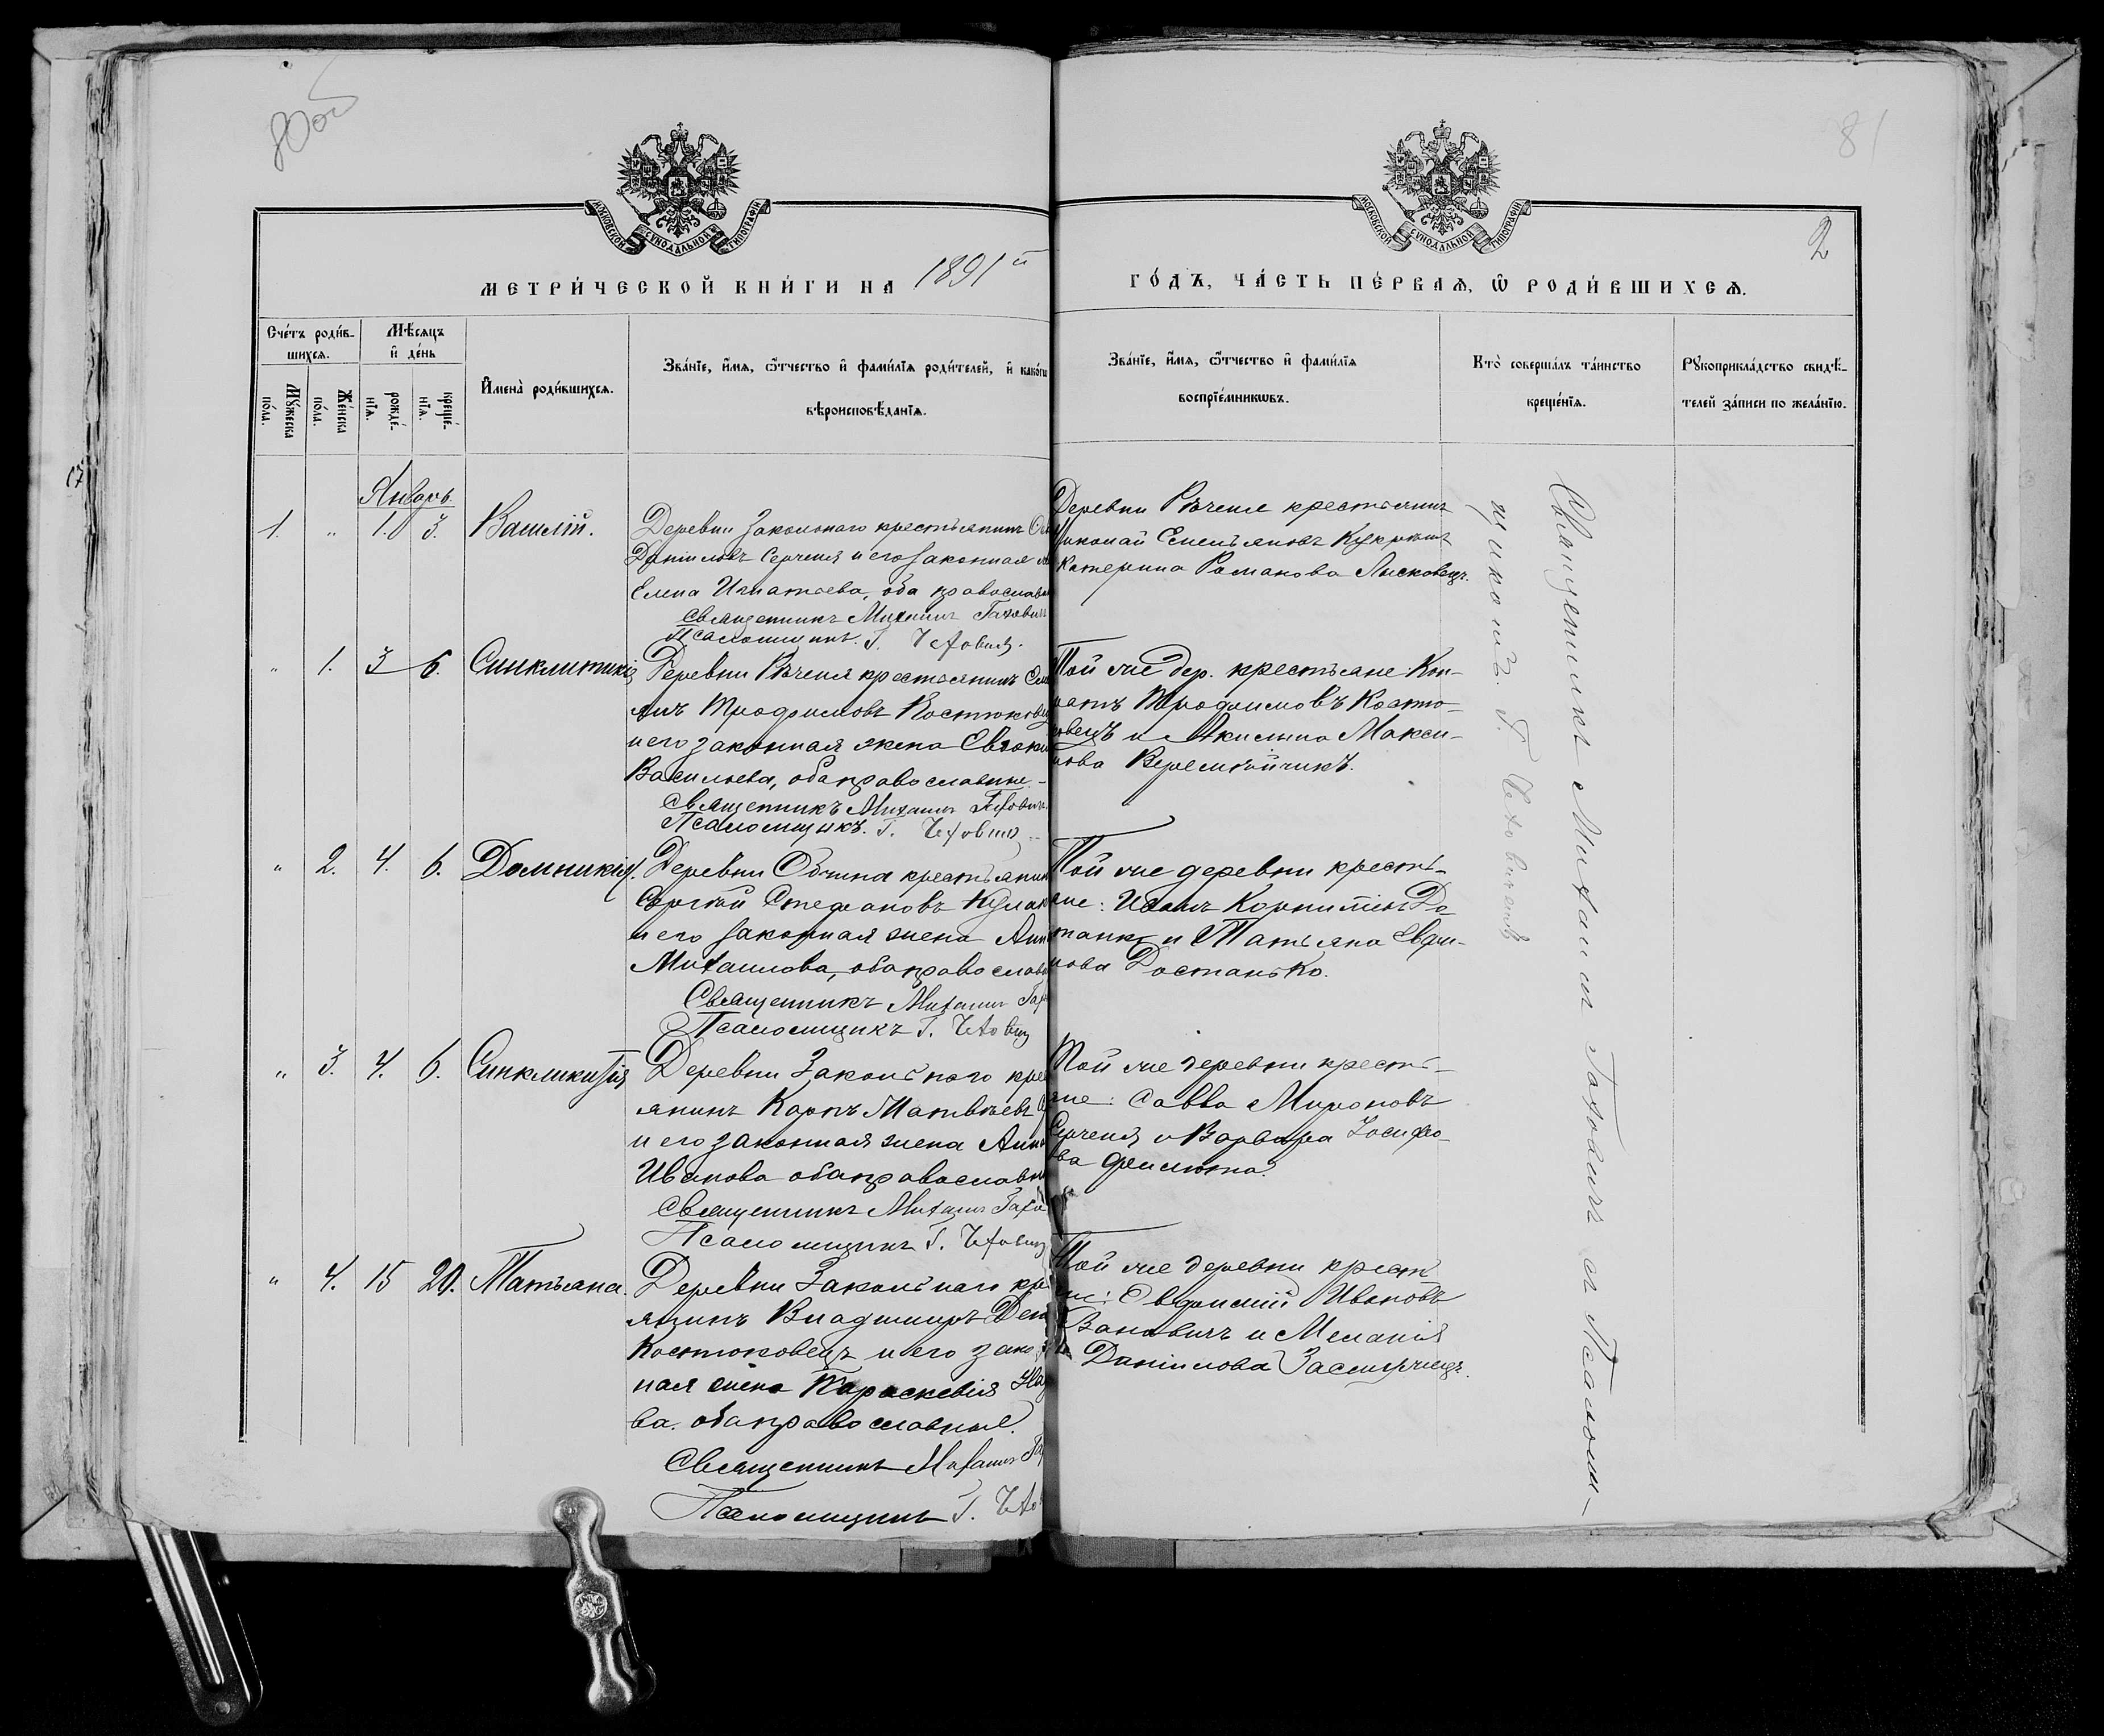 80об
81
2
МОСКОВСКОЙ СУНОДАЛЬНОЙ ТИПОГРАФІИ
МОСКОВСКОЙ СУНОДАЛЬНОЙ ТИПОГРАФІИ
МЕТРИ́ЧЕСКОЙ КНИ́ГИ НА 1891й
ГО́ДЪ, ЧА́СТЬ ПЕ́РВАѦ, Ѡ҆ РОДИ́ВШИХСѦ.
Сче́тъ роди́в-
шихсѧ.
Мѣ́сяцъ
и҆ де́нь
Мꙋ́жеска
по́ла.
Же́нска
по́ла.
рожде́-
нїѧ.
креще́-
нїѧ.
И҆мена̀ роди́вшихсѧ.
Зва́нїе, и҆́мѧ, ѻ҆́тчество и҆ фами́лїѧ роди́телей, и҆ како́гѡ
вѣроисповѣ́данїѧ.
Зва́нїе, и҆́мѧ, ѻ҆́тчество и҆ фами́лїѧ
воспрїе́мникѡвъ.
Кто̀ соверша́лъ та́инство
креще́нїѧ.
Рꙋкоприкла́дство свидѣ́-
телей за́писи по жела́нїю.
Январь.
1. " 1. 3. Василій.
Деревни Закольнаго крестьянинъ
Даніиловъ Серченя и его законная
Елена Игнатьева, оба православн
Священникъ Михаилъ Гахович
Псаломщикъ. Г. Чехович.
Деревни Рѣченя крестьянинъ
Николай Емельяновъ
Катерина Романова Лисковецъ.
" 1. 3 6. Синклитикія
Деревни Рѣченя крестьянинъ Еме
янъ Трофимовъ Костюкове
и его законная жена Евдокі
Васильева, оба православные.
Священникъ Михаилъ Гахович.
Псаломщикъ. Г. Чехович
Той же дер. крестьяне Кон-
ратъ Трофимовъ Костю-
ковецъ и Акилина Макси-
мова Веремейчикъ.
" 2. 4. 6. Домникія.
Деревни Обчина крестьянин
Сергѣй Стефановъ Кулак
и его законная жена Анн
Михаилова, оба православн
Священникъ Михаилъ Гах
Псаломщикъ Г. Чехович
Той же деревни кресть-
яне: Иванъ Корнилiевъ До
танк и Татьяна Евфи-
мова Достанько.
" 3. 4. 6. Синкликитія
Деревни Закольного крес
янинъ Карпъ Матвѣевъ
и его законная жена Анна
Иванова оба православн
Священникъ Михаилъ Гахо
Псаломщикъ Г. Чехович
Той же деревни кресть-
яне: Савва Мироновъ
Серченя и Варвара Іосифо-
ва
" 4. 15 20. Татьяна.
Деревни Закольнаго кре
янинъ Владимиръ Дем
Костюковецъ и его закон
ная жена Параскевія
ва. оба православные.
Священникъ Михаилъ Га
Псаломщикъ Г. Чехо
Той же деревни крест
яне: Евфимій Ивановъ
и Меланія
Даніилова
Священникъ Михаилъ Гаховичъ и Псалом-
щикомъ. Г. Чеховичемъ